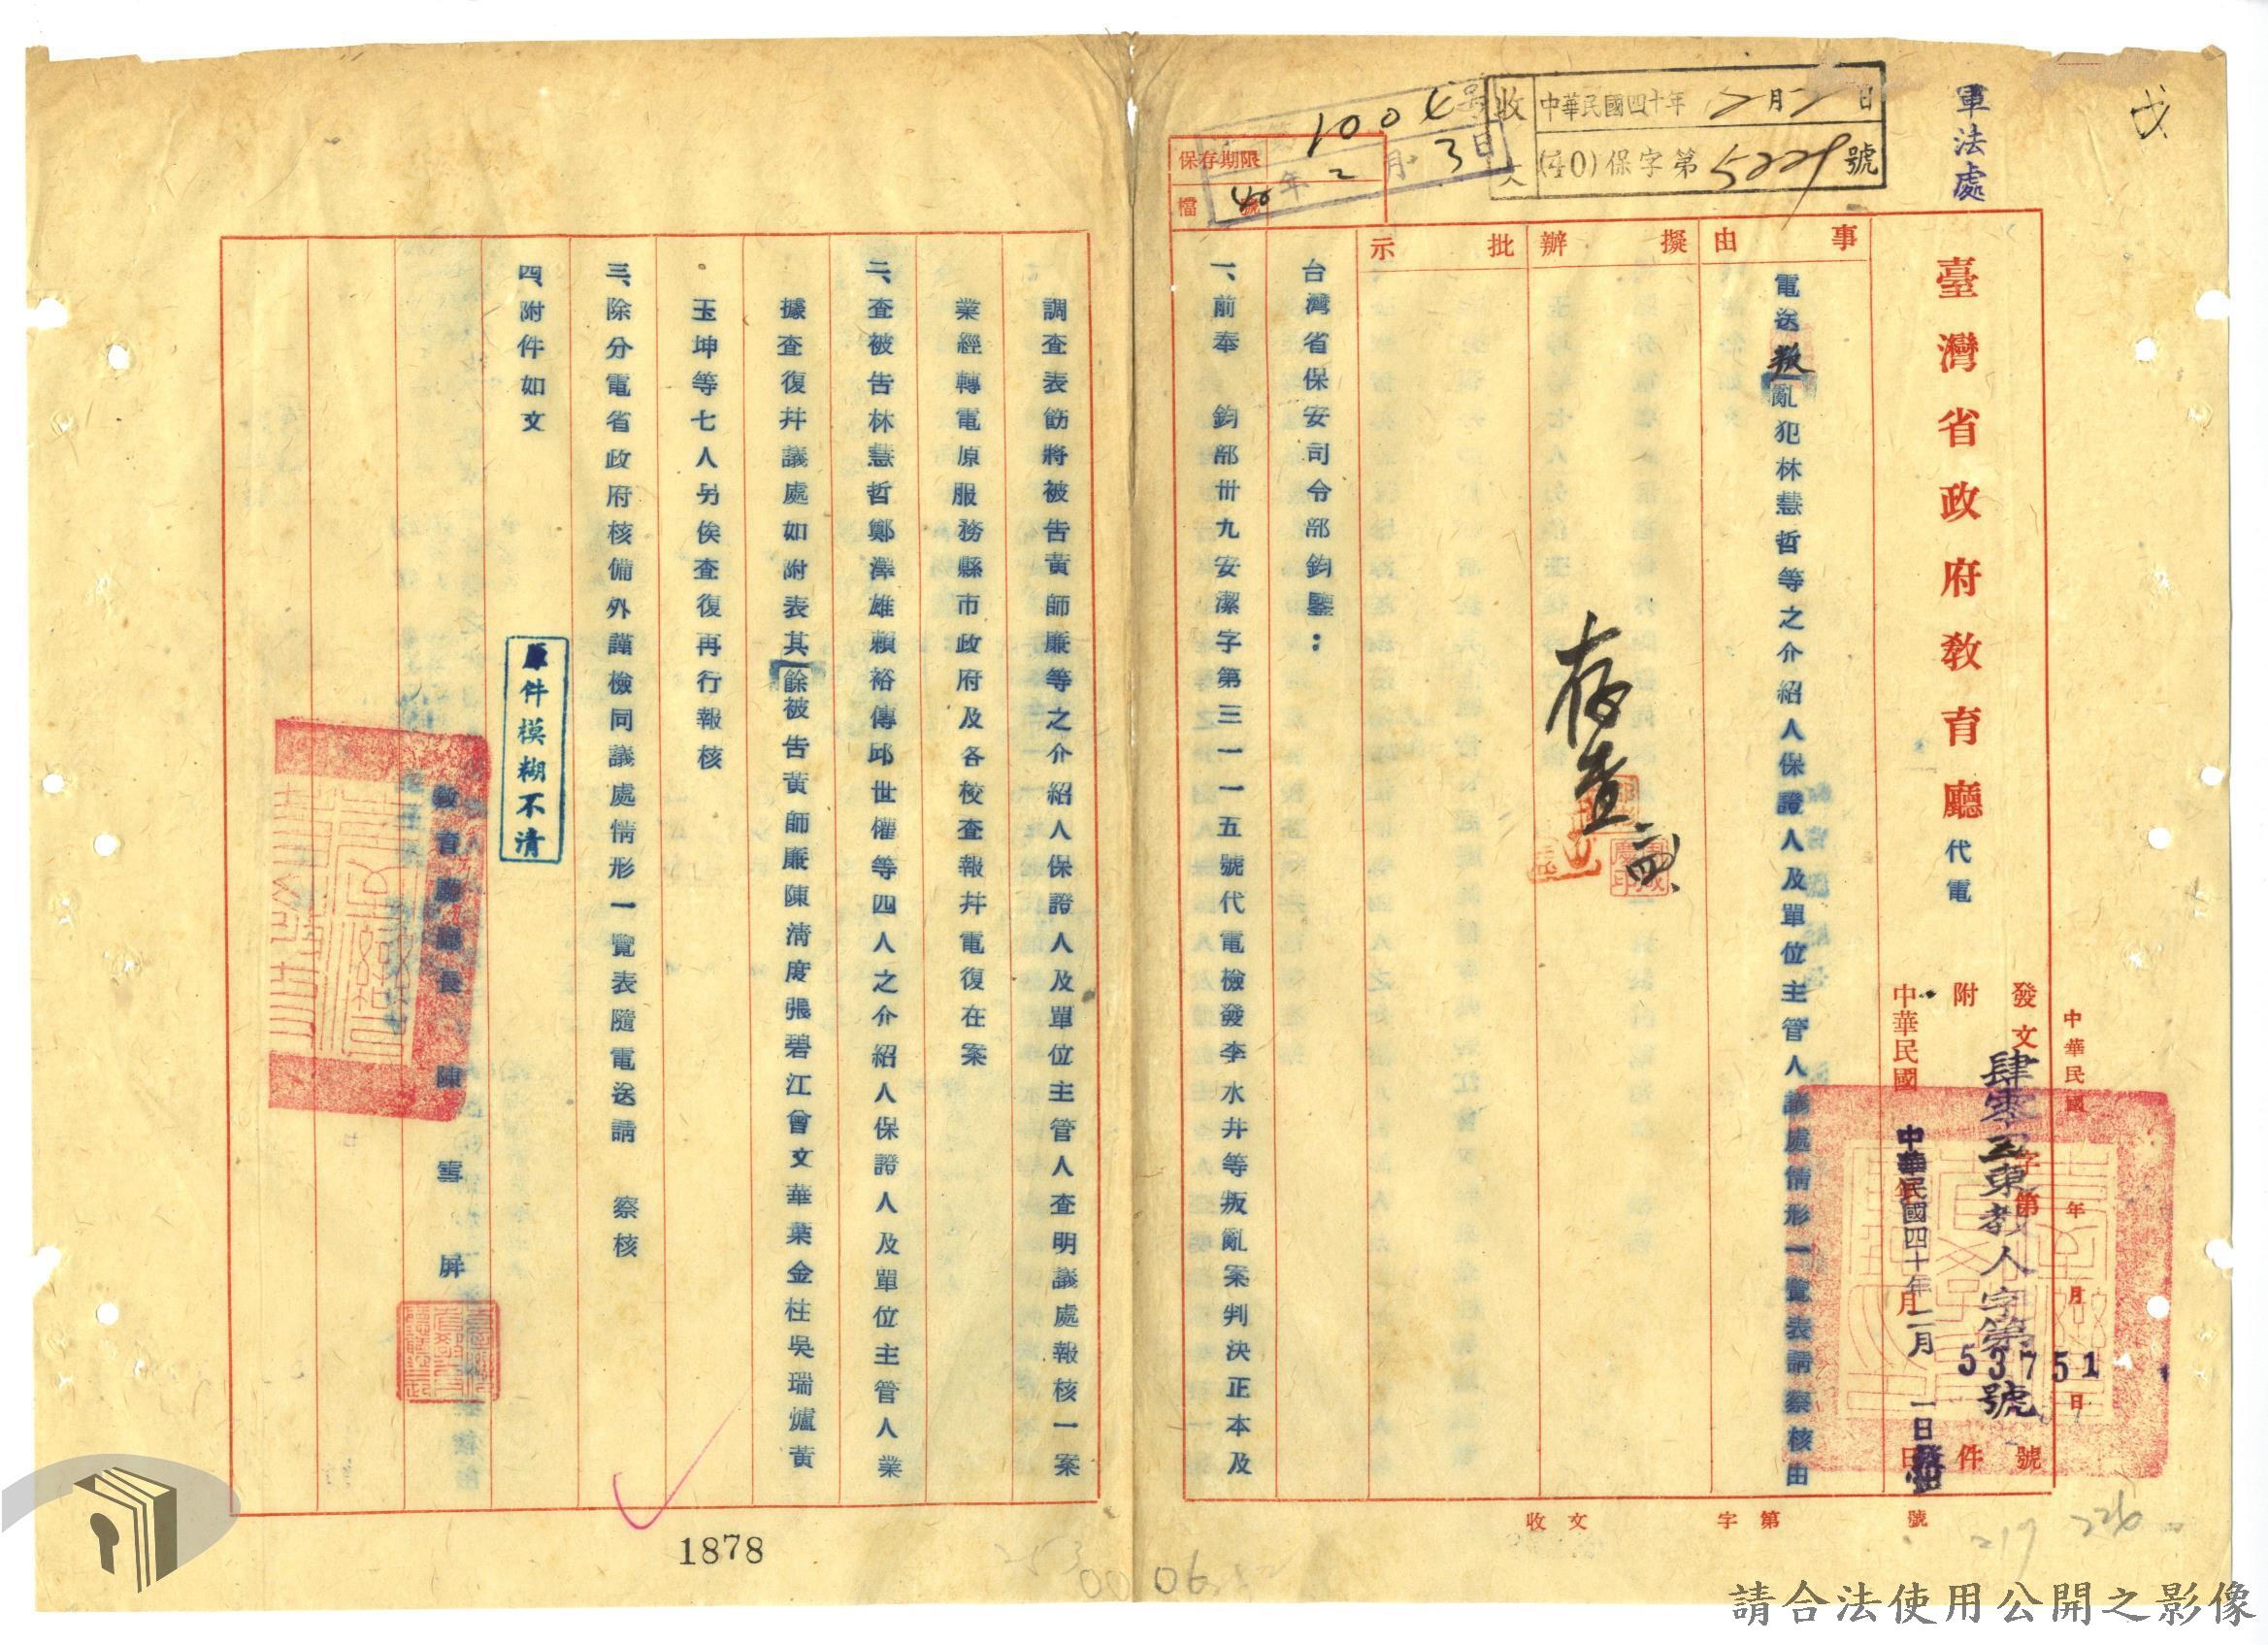 軍法處
收 中華民國四十年2月3日
文 (40)保字第5229號
1004號
40年2月3日
保存期限
檔號
臺灣省政府教育廳代電
中華民國 年 月 日
發文 字第 號
附 件
中華民國 月 日
肆零 東教人字第53751號
中華民國四十年二月一日
事由
擬辦
批示
電送叛亂犯林慧哲等之介紹人保證人及單位主管人議處情形一覽表請察核由
存查
台灣省保安司令部鈞鑒:
一、前奉 鈞部卅九安潔字第三一一五號代電檢發李水井等叛亂案判決正本及
調查表飭將被告黃師廉等之介紹人保證人及單位主管人查明議處報核一案
業經轉電原服務縣市政府及各校查報幷電復在案
二、查被告林慧哲鄭澤雄賴裕傳邱世權等四人之介紹人保證人及單位主管人業
據查復幷議處如附表其餘被告黃師廉陳清度張碧江曾文華葉金柱吳瑞爐黃
玉坤等七人另俟查復再行報核
三、除分電省政府核備外謹檢同議處情形一覽表隨電送請 察核
四、附件如文
原件模糊不清
教育廳廳長陳雪屏
收文 字第 號
1878
253
0006
219
226
請合法使用公開之影像